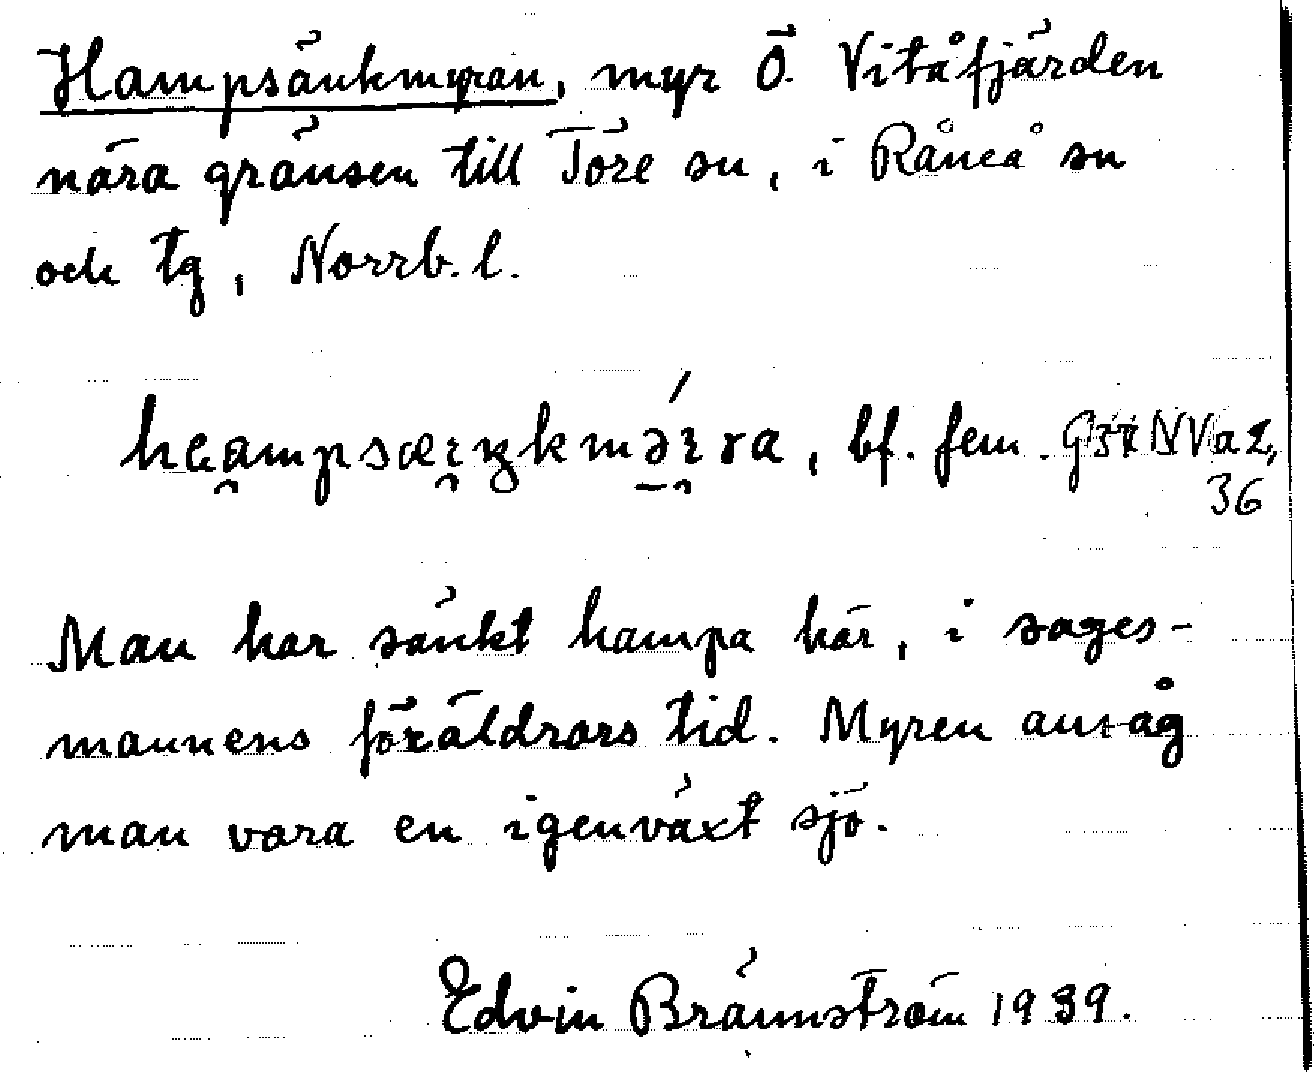 Hampsänkmyran, myr Ö. Vitåfjärden
nära gränsen till Töre sn, i Råneå sn
och tg, Norrb. l.
, bf. fem.
36
Man har sänkt hampa här, i sages-
mannens föräldrars tid. Myren ansåg
man vara en igenväxt sjö.
Edvin Brännström 1939.